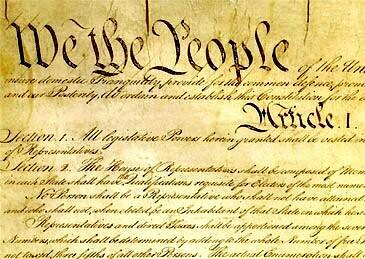 We the People of the Uni
insure domestic Tranquility, provide for the common defence, prom
and our Posterity, do ordain and establish this Constitution for the
Article. I
Section. 1. All legislative Powers herein granted shall be vested in
of Representatives.
Section. 2. The House of Representatives shall be composed of Mem
in each State shall have the Qualifications requisite for Electors of the most nume
No Person shall be a Representative who shall not have attained
and who shall not, when elected, be an Inhabitant of that State in which
Representatives and direct Taxes shall be apportioned among the seve
Numbers, which shall be determined by adding to the whole Number of free
not taxed, three fifths of all other Persons. The actual Enumeration shall